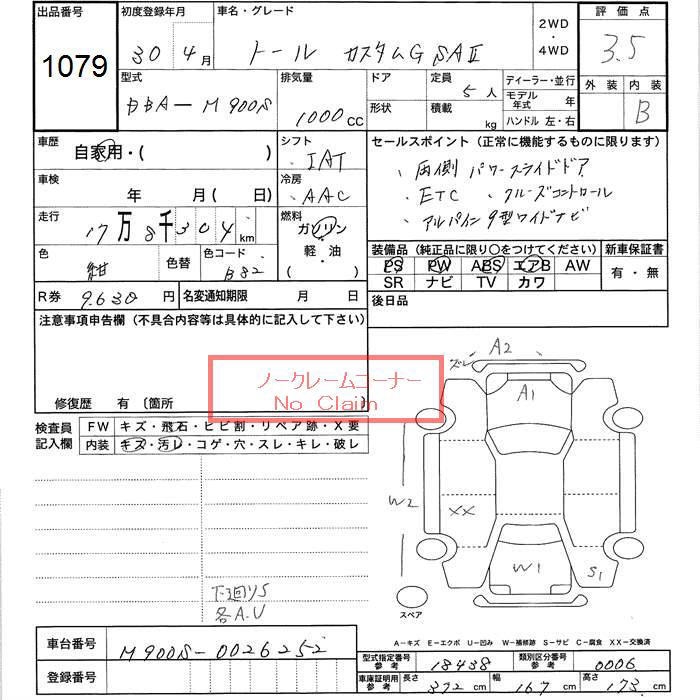 出品番号
1079
初度登録年月
30年 4月
車名・グレード
トール カスタムG SAⅡ
2WD
・
4WD
評価点
3.5
外装 内装
B
型式
DBA-M900S
排気量
1000cc
ドア
形状
定員
5人
積載
kg
ディーラー・並行
モデル年式 年
ハンドル 左・右
車歴
自家用・( )
シフト
IAT
車検
年 月(日)
冷房
AAC
走行
17万8千304km
燃料
ガソリン
・
軽・油
( )
色
紺
色替
色コード
B82
R券 9,630円
名変通知期限 月 日
セールスポイント(正常に機能するものに限ります)
・両側パワースライドドア
・ETC ・クルーズコントロール
・アルパイン9型ワイドナビ
装備品(純正品に限り○をつけてください)
PS PW ABS エアB AW
SR ナビ TV カワ
新車保証書
有・無
後日品
注意事項申告欄(不具合内容等は具体的に記入して下さい)
ノークレームコーナー
No Claim
修復歴 有 〔箇所
検査員記入欄
FW キズ・飛石・ヒビ割・リペア跡・X要
内装 キズ・汚レ・コゲ・穴・スレ・キレ・破レ
下廻りS
各A.U
ズレ A2
A1
W2
XX
W1
S1
スペア
A-キズ E-エクボ U-凹み W-補修跡 S-サビ C-腐食 XX-交換済
車台番号 M900S-0026252
登録番号
型式指定番号 参考 18438
類別区分番号 参考 0006
車庫証明用 参考 長さ 372cm 幅 167cm 高さ 173cm